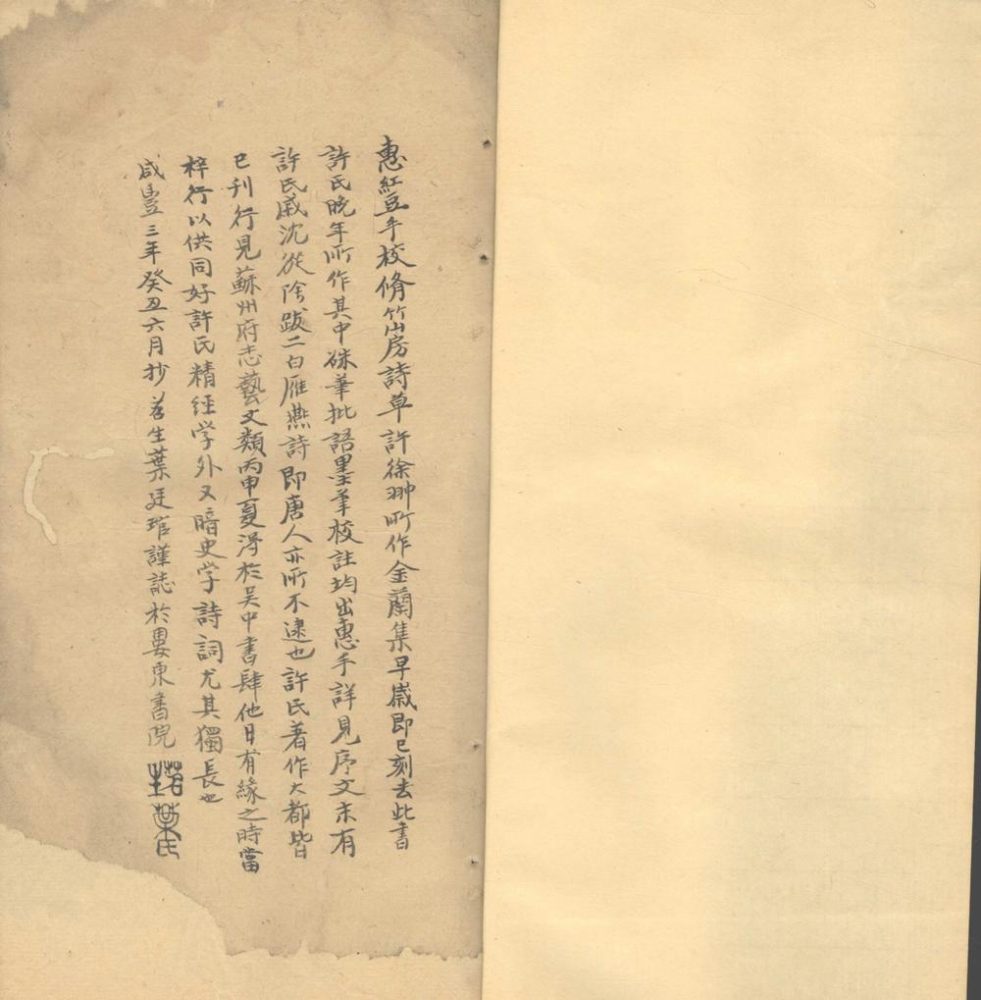 惠紅豆手校脩竹山房詩草許徐翀所作金蘭集早歲即已刻去此書
許氏晚年所作其中硃筆批語墨筆校註均出惠手詳見序文末有
許氏戚沈從隂跋二白雁燕詩即唐人亦所不逮也許氏著作大都皆
已刊行見蘇州府志藝文類丙申夏淂於吴中書肆他日有緣之時當
梓行以供同好許氏精經学外又暗史学詩詞尤其獨長也
咸豊三年癸丑六月抄 苕生葉廷琯謹誌於婁東書院
葉氏